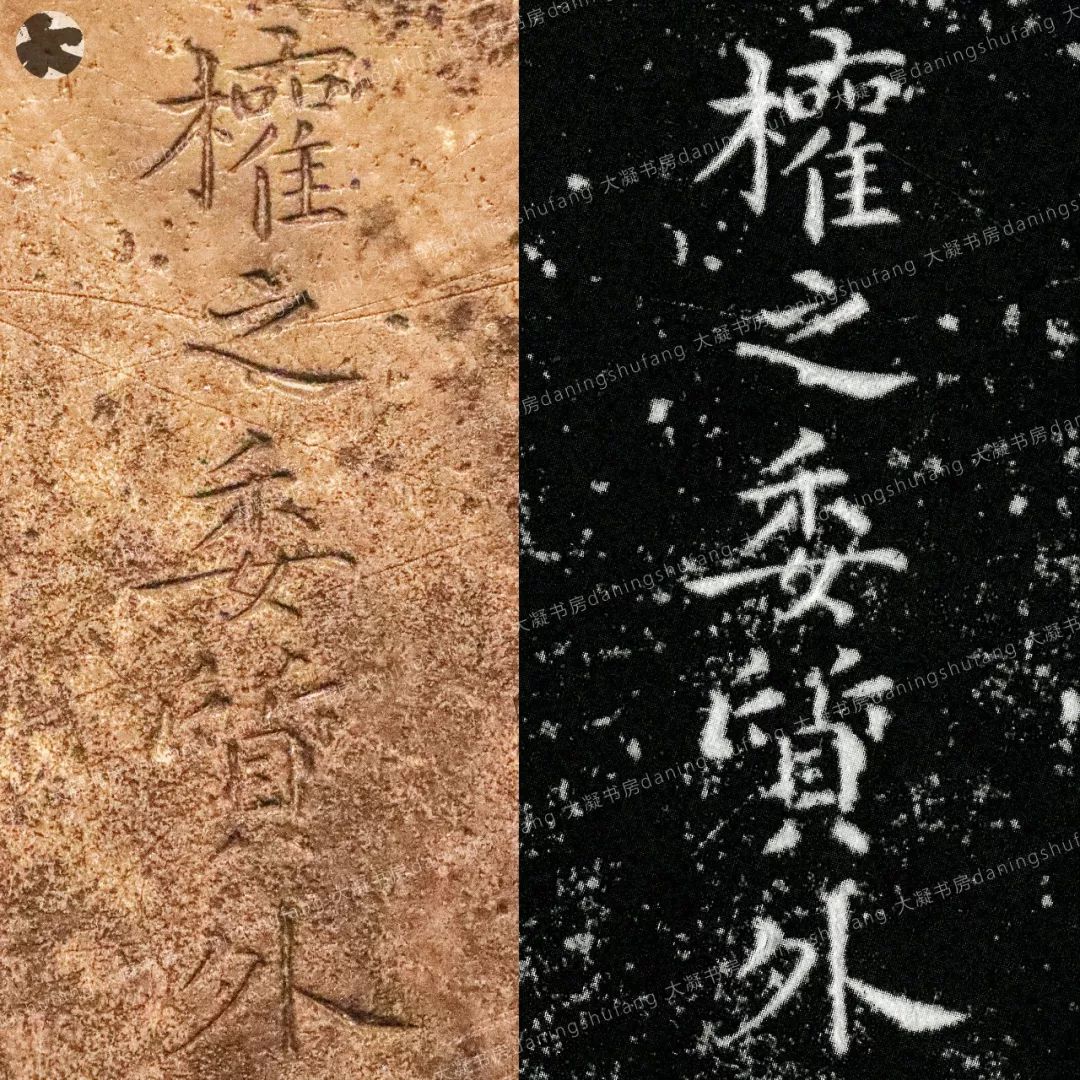 權之委質外
權之委質外
大凝书房daningshufang